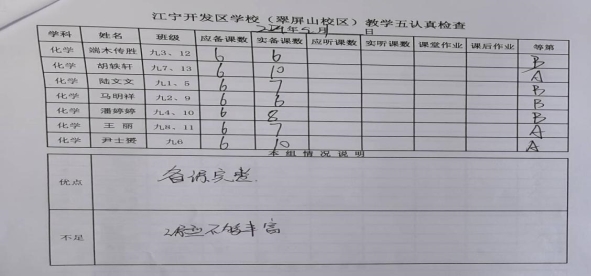 江宁开发区学校（翠屏山校区）教学五认真检查
年5月 日
学科 姓名 班级 应备课数 实备课数 应听课数 实听课数 课堂作业 课后作业 等第
化学 端木传胜 九3、12 6 6 B
化学 胡轶轩 九7、13 6 10 A
化学 陆文文 九1、5 6 7 B
化学 马明祥 九2、9 6 6 B
化学 潘婷婷 九4、10 6 8 B
化学 王丽 九8、11 6 7 A
化学 尹士 九6 6 10 A
本组情况说明
优点 备课完整
不足 不够丰富